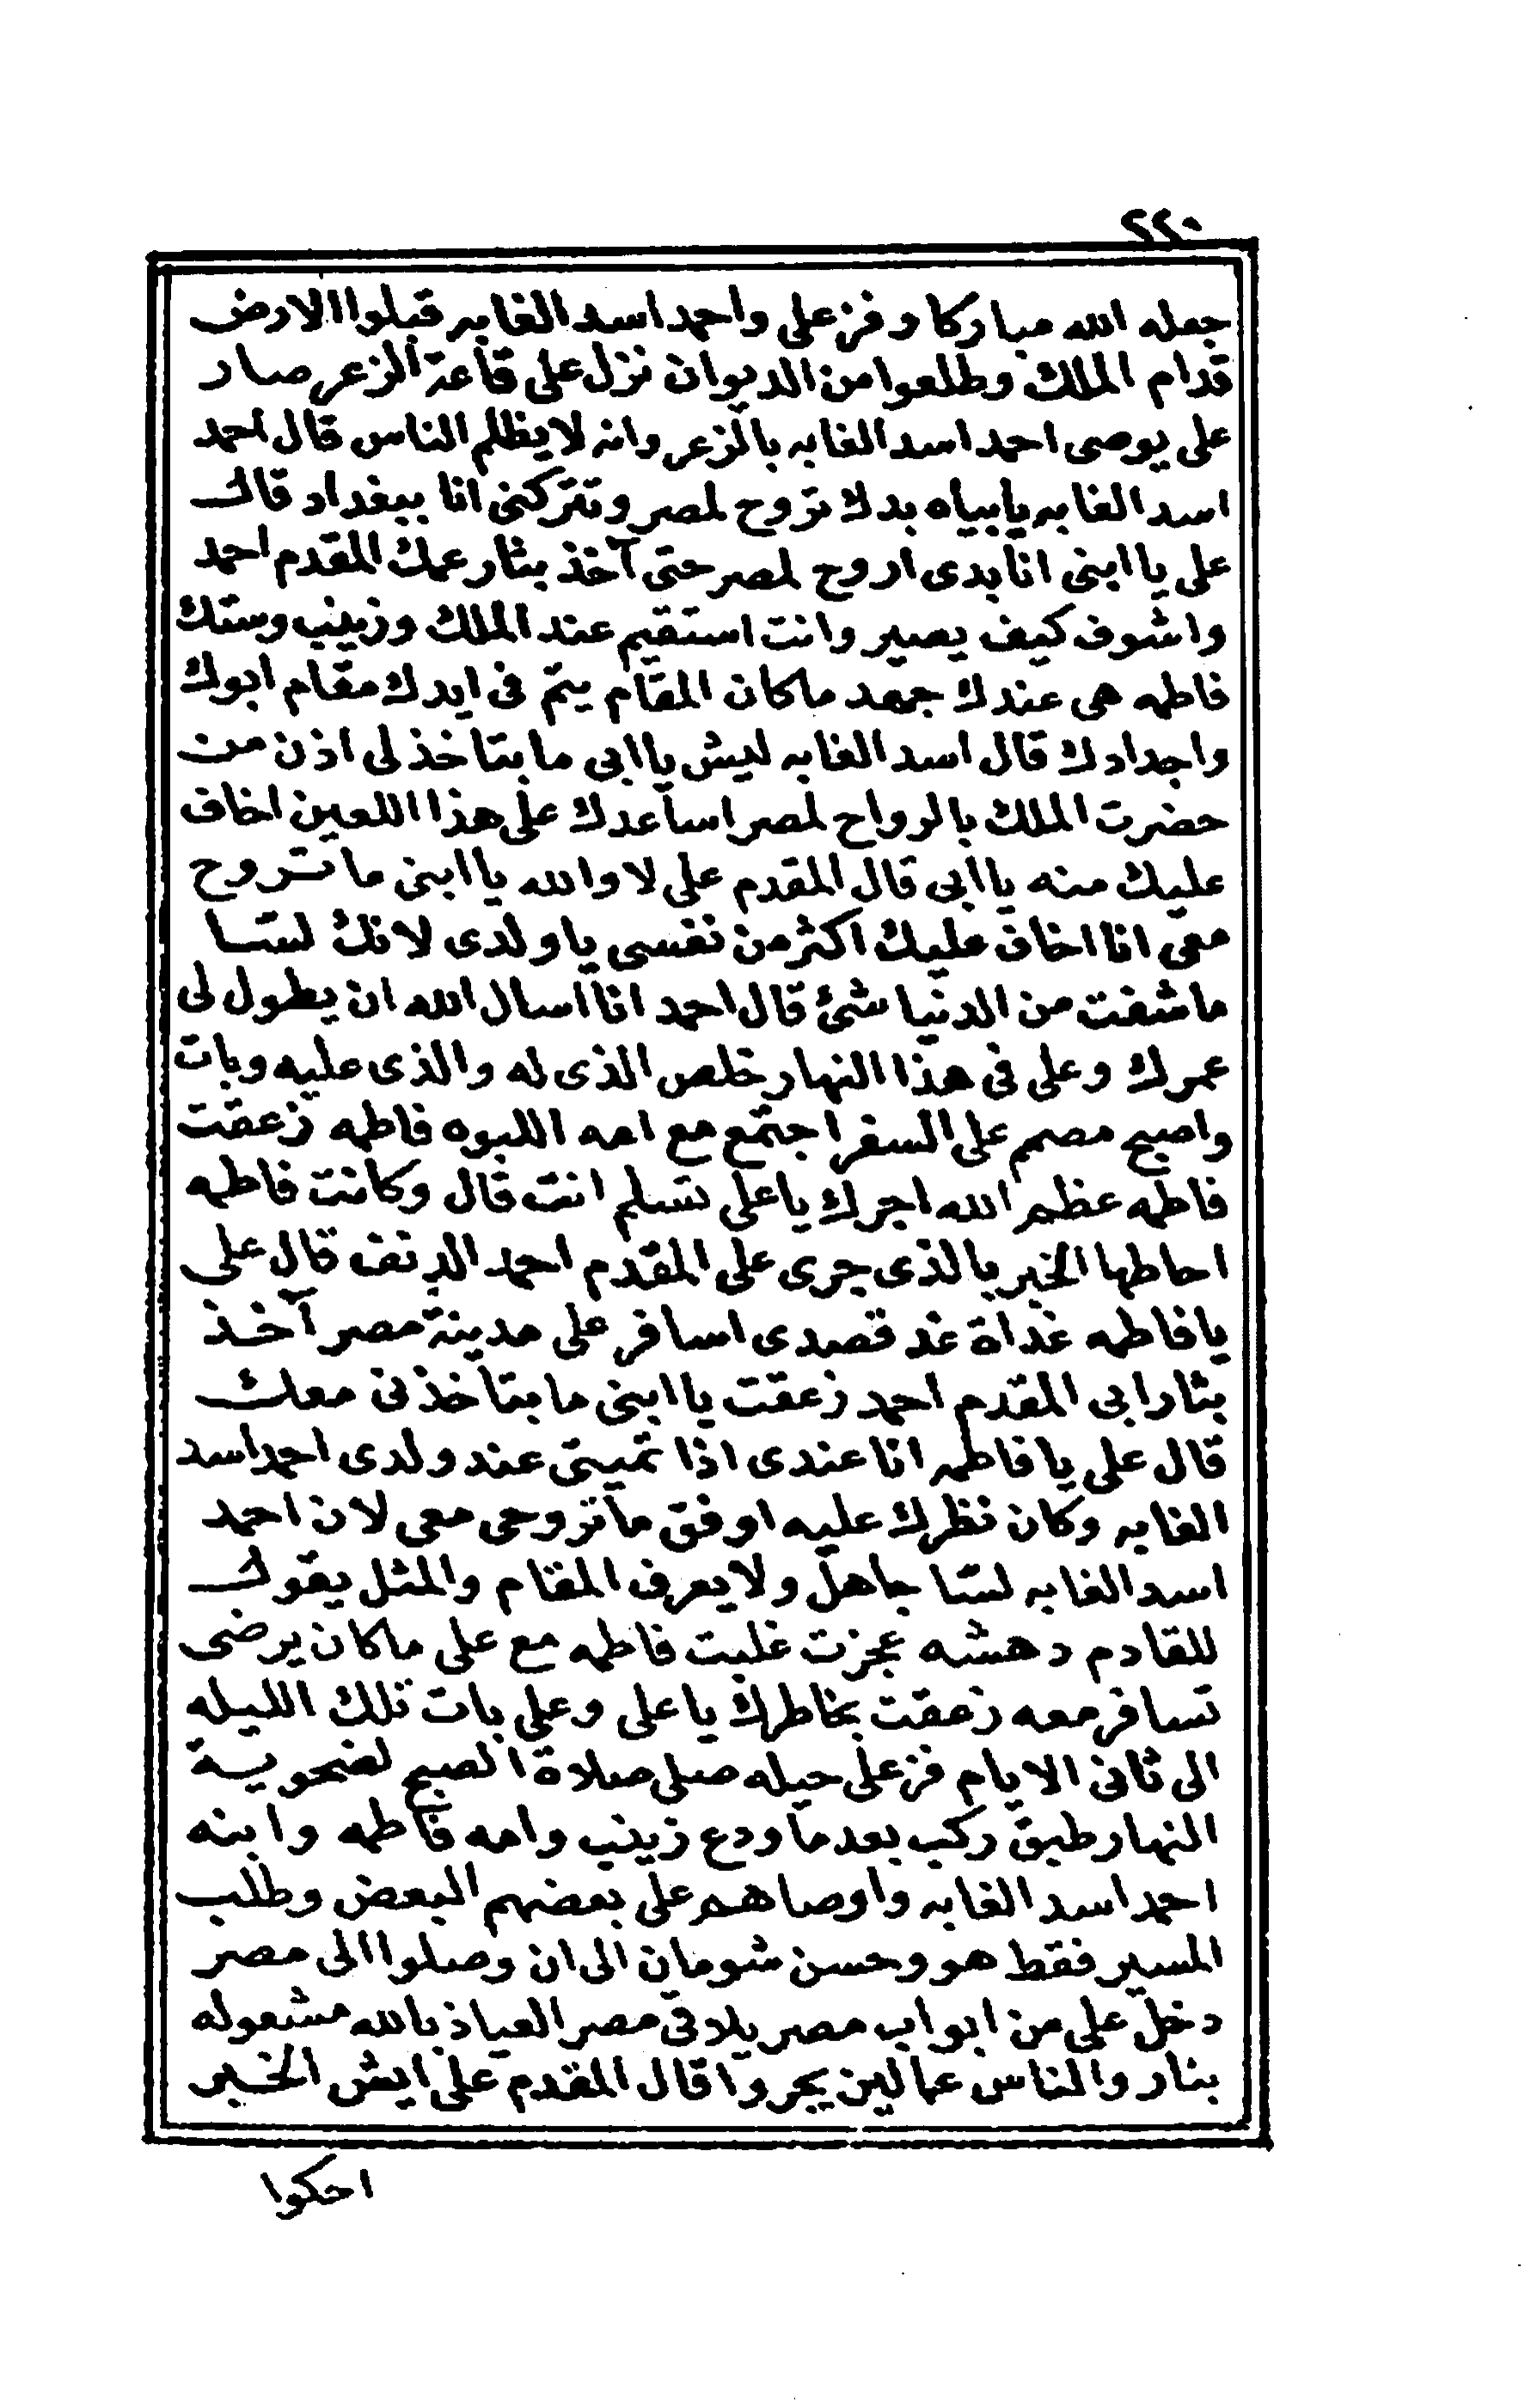 ٢٢٠
جعله الله مباركا وفز على واحمد اسد الغابه قبلوا الارض
قدام الملك وطلعوا من الديوان نزل على قاعة الزعر صار
على يوصى احمد اسد الغابه بالزعر وانه لا يظلم الناس قال احمد
اسد الغابه يابياه بدلا تروح لمصر وتتركنى انا ببغداد قال
على يا ابنى انا بدى اروح لمصر حتى آخذ بثار عمك المقدم احمد
واشوف كيف يصير وانت استقيم عند الملك وزينب وستك
فاطمه هى عندك جهد ماكان المقام يتم فى ايدك مقام ابوك
واجدادك قال اسد الغابه ليش يا ابى ما بتاخذ لى اذن من
حضرت الملك بالرواح لمصر اساعدك على هذا اللعين اخاف
عليك منه يا ابى قال المقدم على لا والله يا ابنى ما تروح
معى انا اخاف عليك اكثر من نفسى يا ولدى لانك لسّا
ما شفت من الدنيا شئ قال احمد انا اسال الله ان يطول لى
عمرك وعلى فى هذا النهار خلص الذى له والذى عليه وبات
واصبح مصمم على السفر اجتمع مع امه اللبوه فاطمه زعقت
فاطمه عظم الله اجرك يا على تسلم انت قال وكانت فاطمه
احاطها الخبر بالذى جرى على المقدم احمد الدنف قال على
يا فاطمه غداة غد قصدى اسافر على مدينة مصر آخذ
بثار ابى المقدم احمد زعقت يا ابنى ما بتاخذنى معك
قال على يا فاطمه انا عندى اذا تميتى عند ولدى احمد اسد
الغابه وكان نظرك عليه اوفق ما تروحى معى لان احمد
اسد الغابه لسّا جاهل ولا يعرف المقام والمثل يقول
للقادم دهشه عجزت غلبت فاطمه مع على ماكان يرضى
تسافر معه زعقت بخاطرك يا على وعلى بات تلك الليله
الى ثانى الايام فز على حيله صلى صلاة الصبح لضحوية
النهار طبق ركب بعد ما ودع زينب وامه فاطمه وابنه
احمد اسد الغابه واوصاهم على بعضهم البعض وطلب
المسير فقط هو وحسن شومان الى ان وصلوا الى مصر
دخل على من ابواب مصر يلاقى مصر العياذ بالله مشعوله
بنار والناس عمالين يجروا قال المقدم على ايش الخبر
احكوا